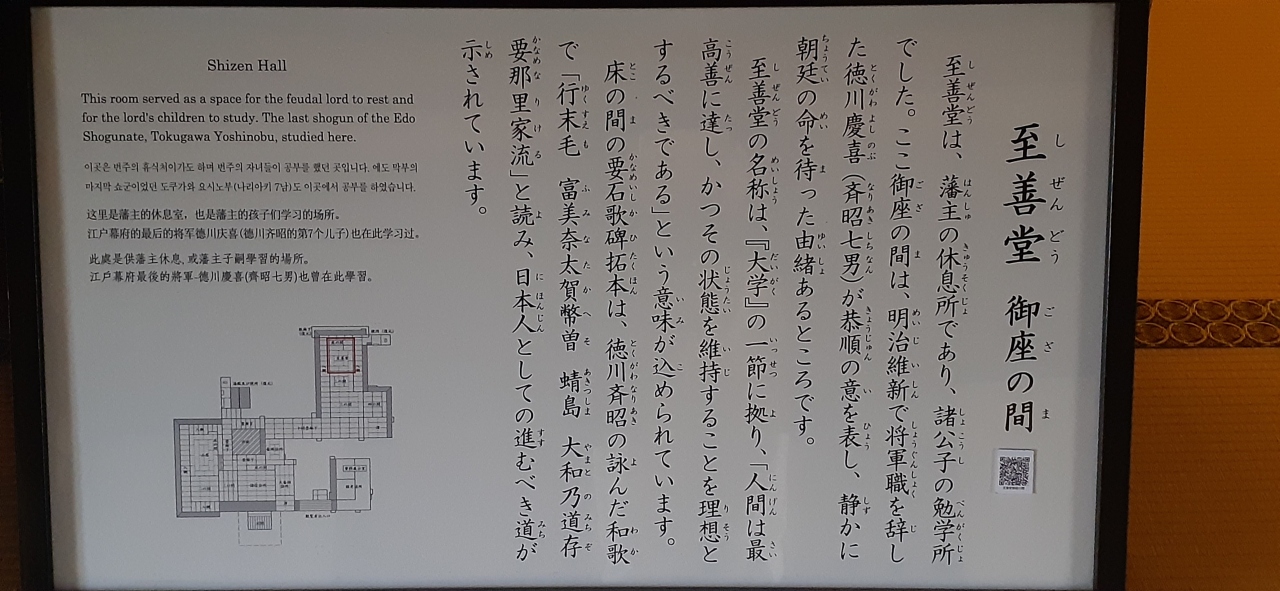 至善堂 御座の間
至善堂は、藩主の休息所であり、諸公子の勉学所
でした。ここ御座の間は、明治維新で将軍職を辞し
た徳川慶喜（斉昭七男）が恭順の意を表し、静かに
朝廷の命を待った由緒あるところです。
至善堂の名称は、『大学』の一節に拠り、「人間は最
高善に達し、かつその状態を維持することを理想と
するべきである」という意味が込められています。
床の間の要石歌碑拓本は、徳川斉昭の詠んだ和歌
で「行末毛 富美奈太賀幣曽 蜻島 大和乃道存
要那里家流」と読み、日本人としての進むべき道が
示されています。
Shizen Hall
This room served as a space for the feudal lord to rest and
for the lord's children to study. The last shogun of the Edo
Shogunate, Tokugawa Yoshinobu, studied here.
이곳은 번주의 휴식처이가도 하며 번주의 자녀들이 공부를 했던 곳입니다. 에도 막부의
마지막 쇼군이었던 도쿠가와 요시노부(나리아키 7남)도 이곳에서 공부를 하였습니다.
这里是藩主的休息室，也是藩主的孩子们学习的场所。
江户幕府的最后的将军德川庆喜(德川齐昭的第7个儿子)也在此学习过。
此處是供藩主休息, 或藩主子嗣學習的場所。
江戶幕府最後的將軍-德川慶喜(齊昭七男)也曾在此學習。